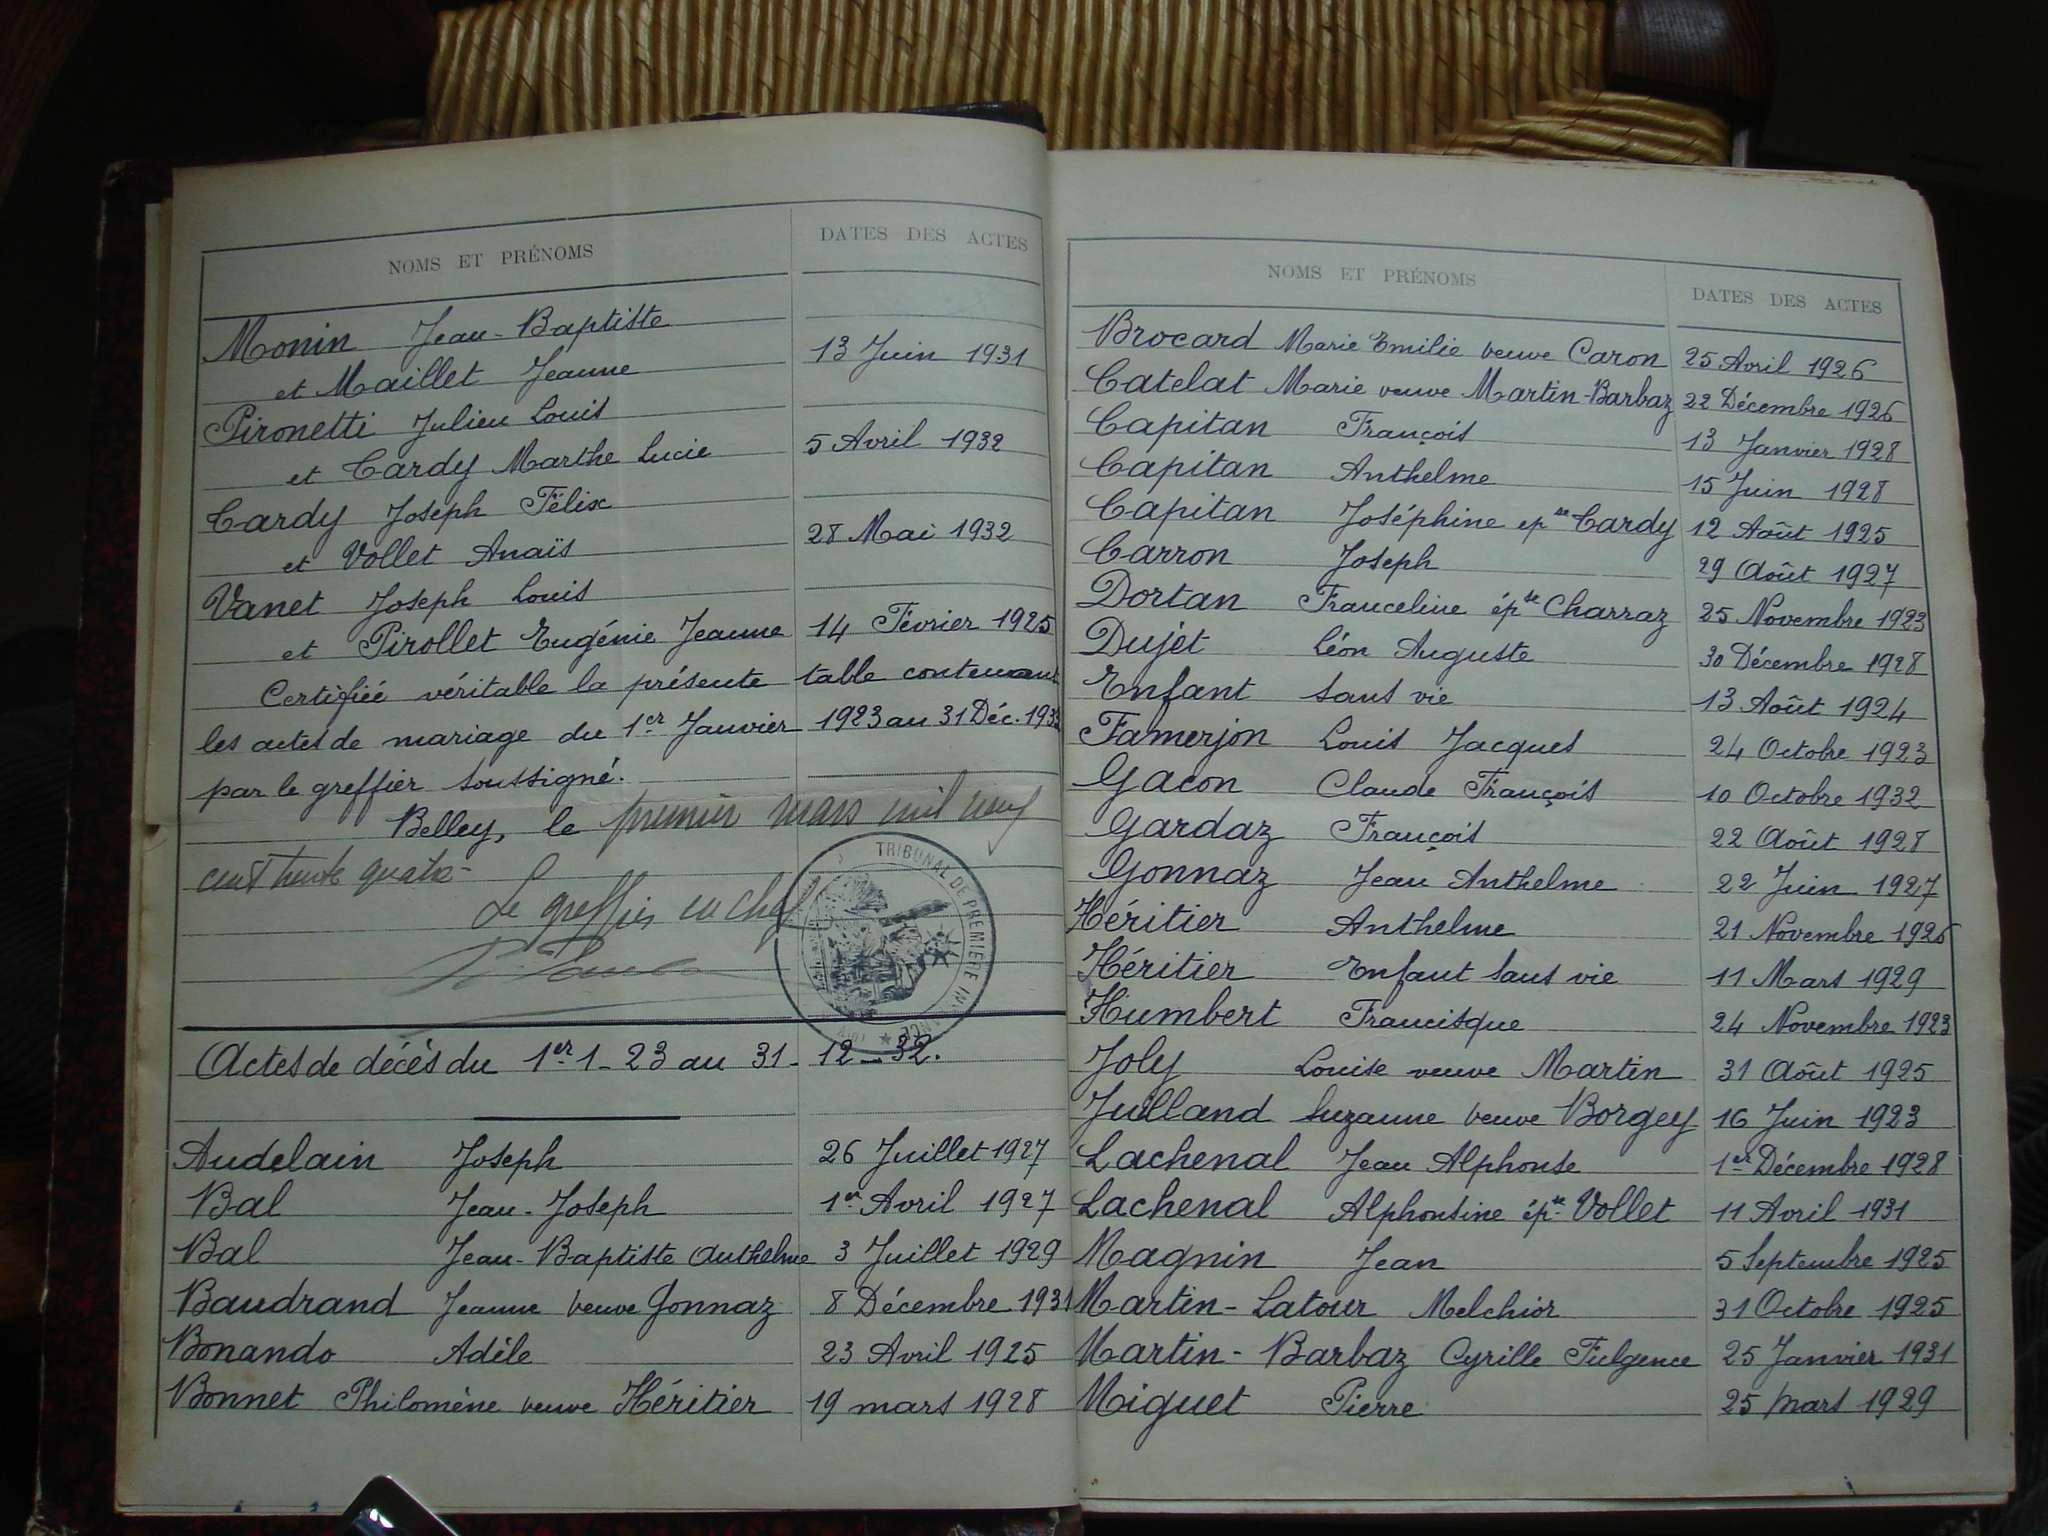 NOMS ET PRÉNOMS DATES DES ACTES
Monin Jean-Baptiste
et Maillet Jeanne 13 Juin 1931
Pironetti Julien Louis
et Cardy Marthe Lucie 5 Avril 1932
Cardy Joseph Félix
et Vollet Anaïs 28 Mai 1932
Vanet Joseph Louis
et Pirollet Eugénie Jeanne 14 Février 1925
Certifiée véritable la présente table contenant
les actes de mariage du 1er Janvier 1923 au 31 Déc. 1932
par le greffier soussigné.
Belley, le premier mars mil neuf
cent trente quatre
Le greffier en chef
TRIBUNAL DE PREMIÈRE INSTANCE
Actes de décès du 1er-1-23 au 31-12-32.
Audelain Joseph 26 Juillet 1927
Bal Jean-Joseph 1er Avril 1927
Bal Jean-Baptiste Anthelme 3 Juillet 1929
Baudrand Jeanne veuve Gonnaz 8 Décembre 1931
Bonando Adèle 23 Avril 1925
Bonnet Philomène veuve Héritier 19 mars 1928
NOMS ET PRÉNOMS DATES DES ACTES
Brocard Marie Emilie veuve Caron 25 Avril 1926
Catelat Marie veuve Martin-Barbaz 22 Décembre 1926
Capitan François 13 Janvier 1928
Capitan Anthelme 15 Juin 1928
Capitan Joséphine epse Cardy 12 Août 1925
Carron Joseph 29 Août 1927
Dortan Franceline épse Charraz 25 Novembre 1923
Dujet Léon Auguste 30 Décembre 1928
Enfant sans vie 13 Août 1924
Famerjon Louis Jacques 24 Octobre 1923
Gacon Claude François 10 Octobre 1932
Gardaz François 22 Août 1928
Gonnaz Jean Anthelme 22 Juin 1927
Héritier Anthelme 21 Novembre 1926
Héritier Enfant sans vie 11 Mars 1929
Humbert Francisque 24 Novembre 1923
Joly Louise veuve Martin 31 Août 1925
Juilland Suzanne veuve Borgey 16 Juin 1923
Lachenal Jean Alphonse 1er Décembre 1928
Lachenal Alphonsine épse Vollet 11 Avril 1931
Magnin Jean 5 Septembre 1925
Martin-Latour Melchior 31 Octobre 1925
Martin-Barbaz Cyrille Fulgence 25 Janvier 1931
Miguet Pierre 25 mars 1929